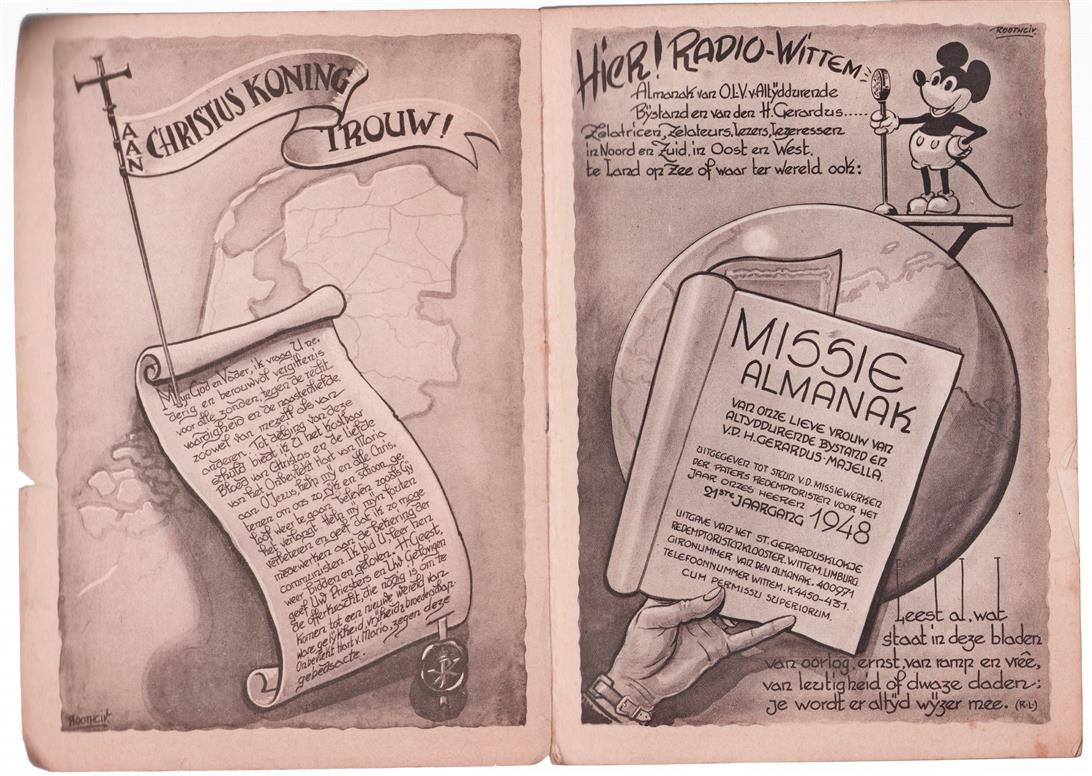 AAN
CHRISTUS KONING
TROUW!
Mijn God en Vader, ik vraag U ne-
derig en berouwvol vergiffenis
voor alle zonden, tegen de recht
vaardigheid en de naastenliefde,
zoowel van mezelf als van
anderen. Tot delging van deze
schuld bied ik U het kostbaar
Bloed van Christus en de liefde
van het Onbevlekt Hart van Maria
aan. O Jezus, help mij en alle Chris-
tenen om ons zo rijk en schoon ge
loof weer te gaan beleven zooals Gij
het verlangt. Help mij mijn fouten
verbeteren en geef, dat ik zo moge
medewerken aan de bekering der
communisten. Ik bid U: leer hen
weer bidden en geloven. H. Geest,
geef Uw Priesters en Uw Gelovigen
de offerkracht, die nodig is om te
komen tot een nieuwe wereld van
ware gelijkheid, vrijheid & broederschap.
Onbevlekt Hart v. Maria, zegen deze
gebedsacte.
ROOTHCIV
ROOTHCIV
HIER! RADIO-WITTEM
Almanak van O.L.V. v. Altijddurende
Bijstand en van den H. Gerardus.....
Zelatricen, Zelateurs, lezers, lezeressen
in Noord en Zuid, in Oost en West,
te land op zee of waar ter wereld ook:
MISSIE
ALMANAK
VAN ONZE LIEVE VROUW VAN
ALTYDDURENDE BYSTAND EN
V.D. H. GERARDUS-MAJELLA.
UITGEGEVEN TOT STEUN V.D. MISSIEWERKEN
DER PATERS REDEMPTORISTEN VOOR HET
JAAR ONZES HEEREN
21STE JAARGANG 1948
UITGAVE VAN HET ST. GERARDUSKLOKJE
REDEMPTORISTENKLOOSTER. WITTEM. LIMBURG
GIRONUMMER VAN DEN ALMANAK. 400971
TELEFOONNUMMER WITTEM. K4450-431.
CUM PERMISSU SUPERIORUM.
Leest al, wat
staat in deze bladen
van oorlog, ernst, van ramp en vrêe,
van leutigheid of dwaze daden:
je wordt er altijd wijzer mee. (R.L.)